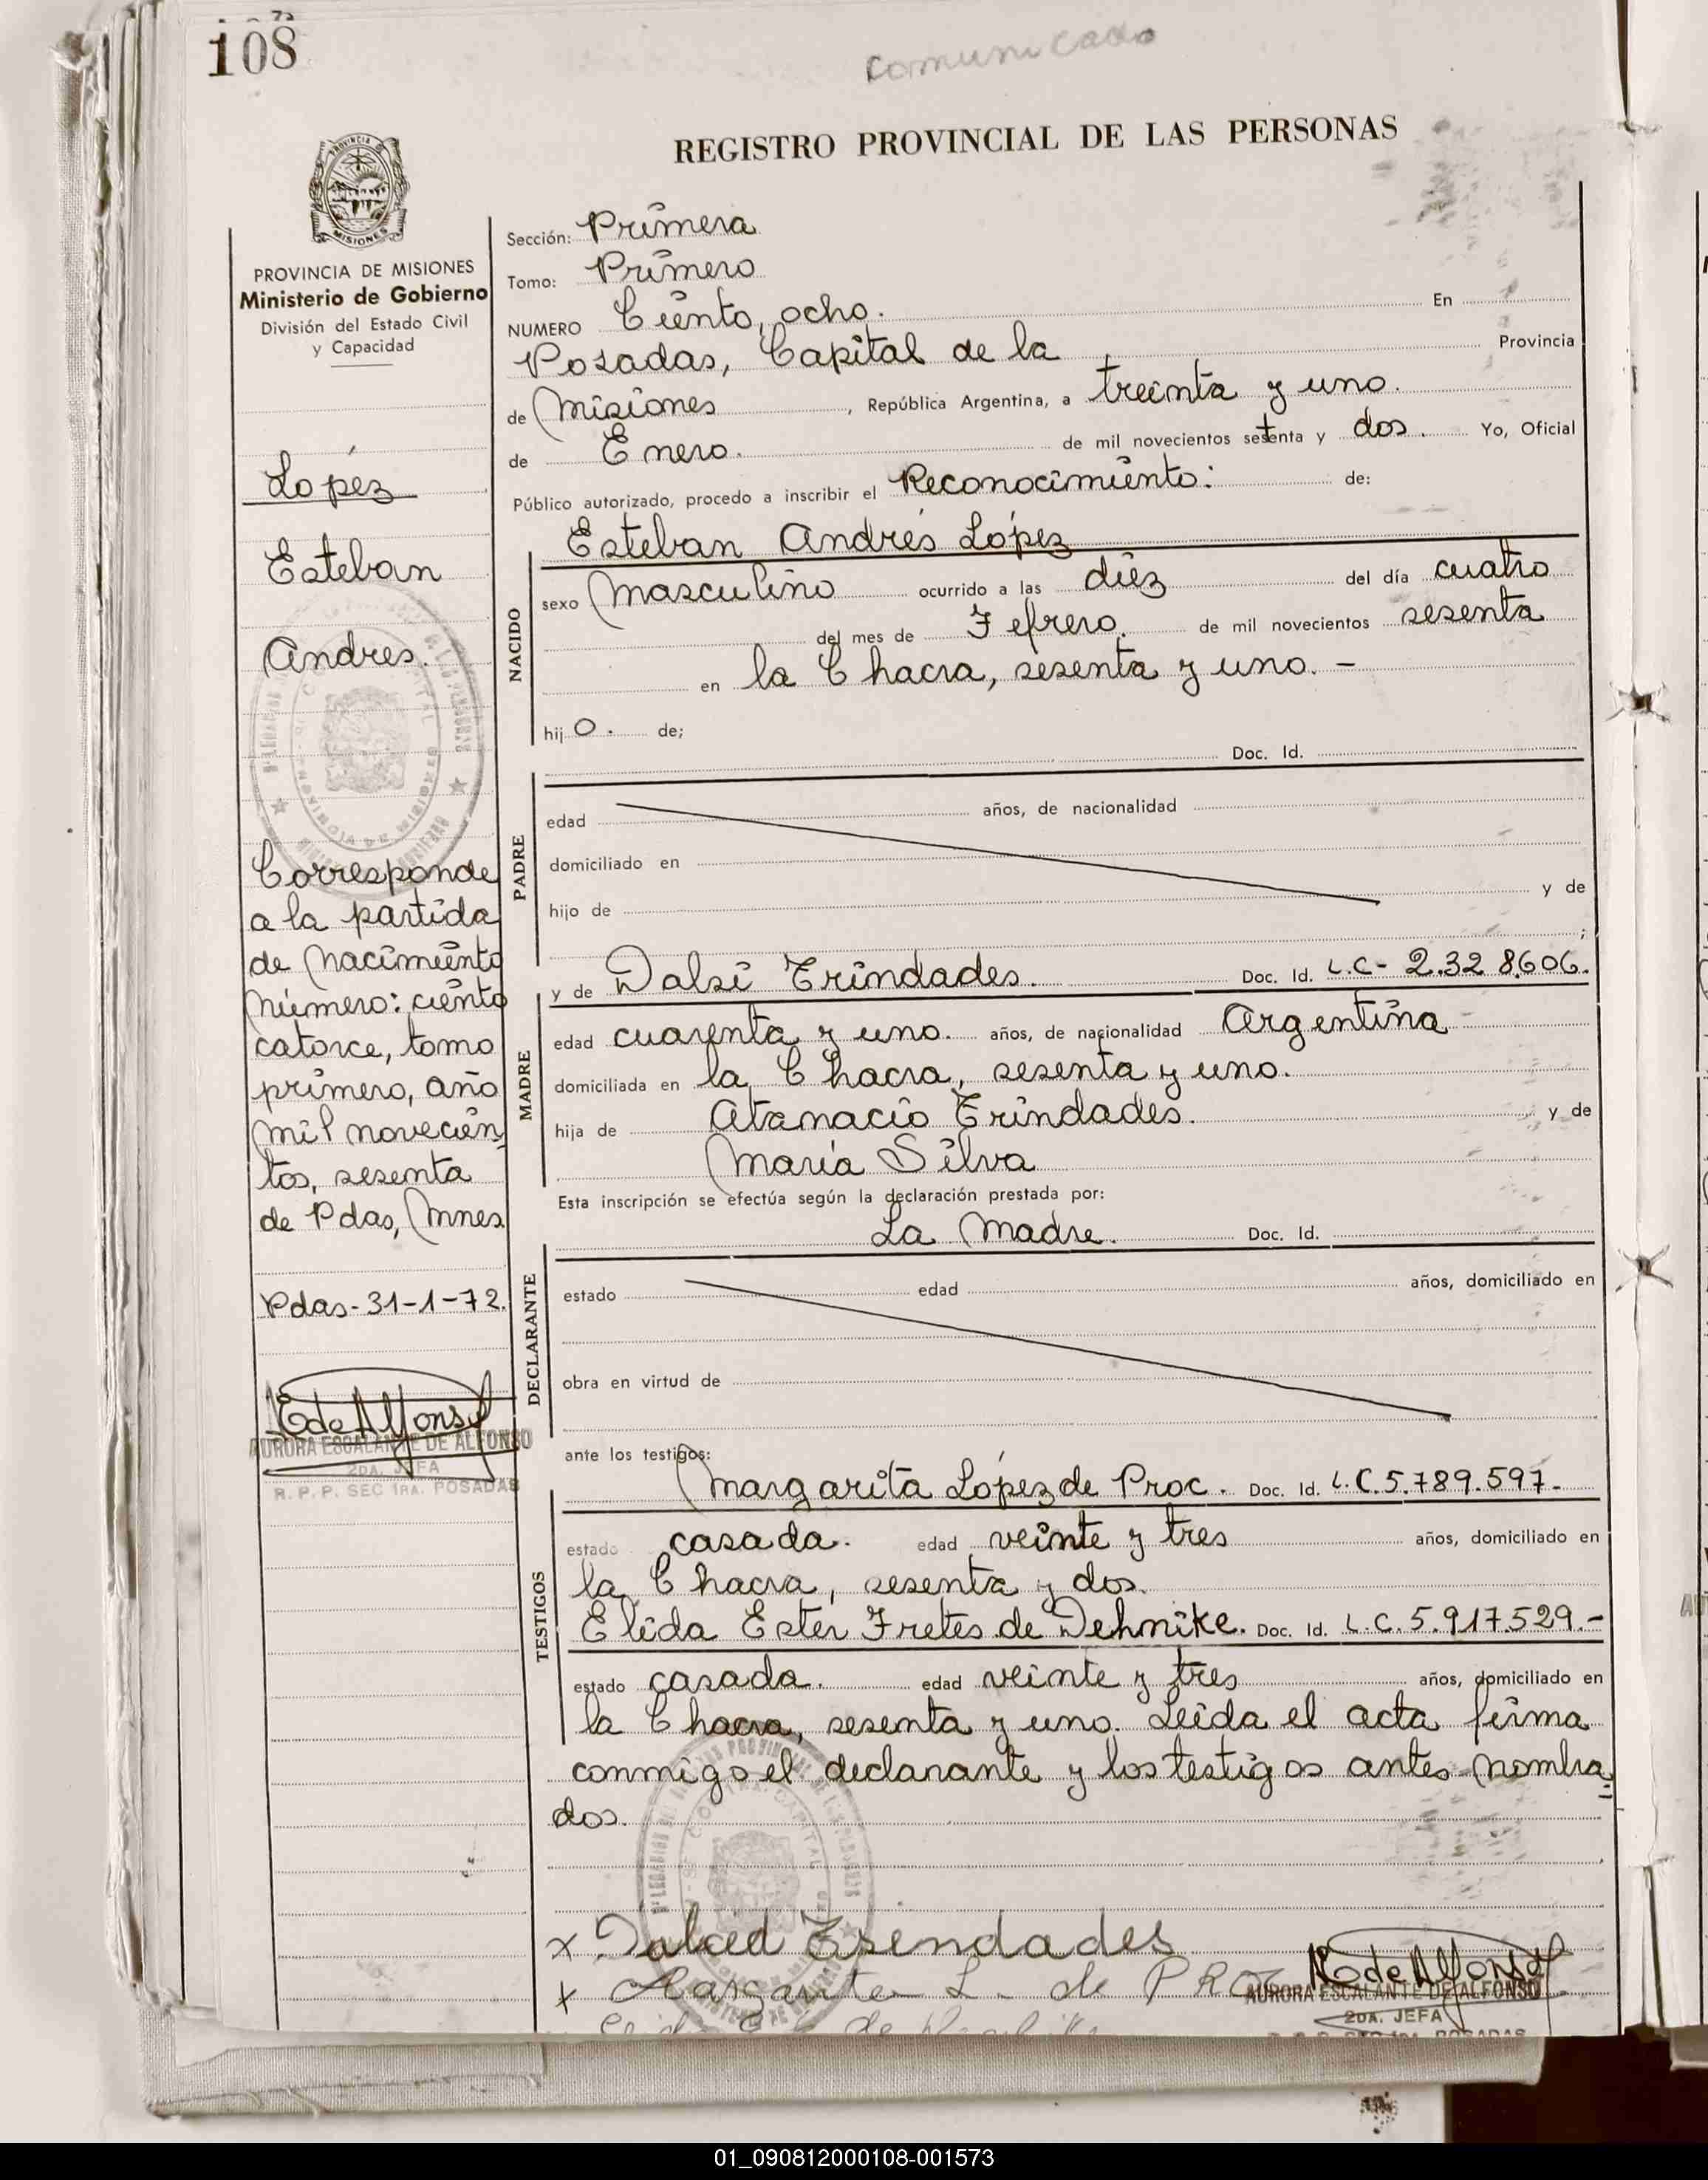 108
comunicado
REGISTRO PROVINCIAL DE LAS PERSONAS
MISIONES
PROVINCIA DE MISIONES
Ministerio de Gobierno
División del Estado Civil
y Capacidad
López
Esteban
Andres.
Corresponde
a la partida
de Nacimiento
Número: ciento
catorce, tomo
primero, año
mil novecien
tos, sesenta
de Pdas, Mnes
Pdas-31-1-72.
AURORA ESCALANTE DE ALFONSO
2DA. JEFA
R. P. P. SEC 1RA. POSADAS
Sección: Primera
Tomo: Primero
NUMERO Ciento, ocho. En
Posadas, Capital de la Provincia
de Misiones, República Argentina, a treinta y uno.
de Enero. de mil novecientos setenta y dos. Yo, Oficial
Público autorizado, procedo a inscribir el Reconocimiento: de:
Esteban Andrés López
NACIDO
sexo Masculino ocurrido a las diez del día cuatro
del mes de Febrero. de mil novecientos sesenta
en la Chacra, sesenta y uno. -
hijo. de;
Doc. Id.
PADRE
edad años, de nacionalidad
domiciliado en
hijo de y de
;
y de Dalsi Trindades. Doc. Id. L.C- 2.328.606.
MADRE
edad cuarenta y uno. años, de nacionalidad Argentina
domiciliada en la Chacra, sesenta y uno.
hija de Atanacio Trindades. y de
María Silva
Esta inscripción se efectúa según la declaración prestada por:
La Madre. Doc. Id.
DECLARANTE
estado edad años, domiciliado en
obra en virtud de
ante los testigos:
Margarita López de Proc. Doc. Id. L.C.5.789.597-
TESTIGOS
estado casada. edad veinte y tres años, domiciliado en
la Chacra, sesenta y dos.
Elida Ester Fretes de Dehnike. Doc. Id. L.C.5.917.529.-
estado casada. edad veinte y tres años, domiciliado en
la Chacra, sesenta y uno. Leida el acta firma
conmigo el declarante y los testigos antes nombra
dos.
x Trendades
x Margarita L. de PROC
AURORA ESCALANTE DE ALFONSO
2DA. JEFA
01_090812000108-001573